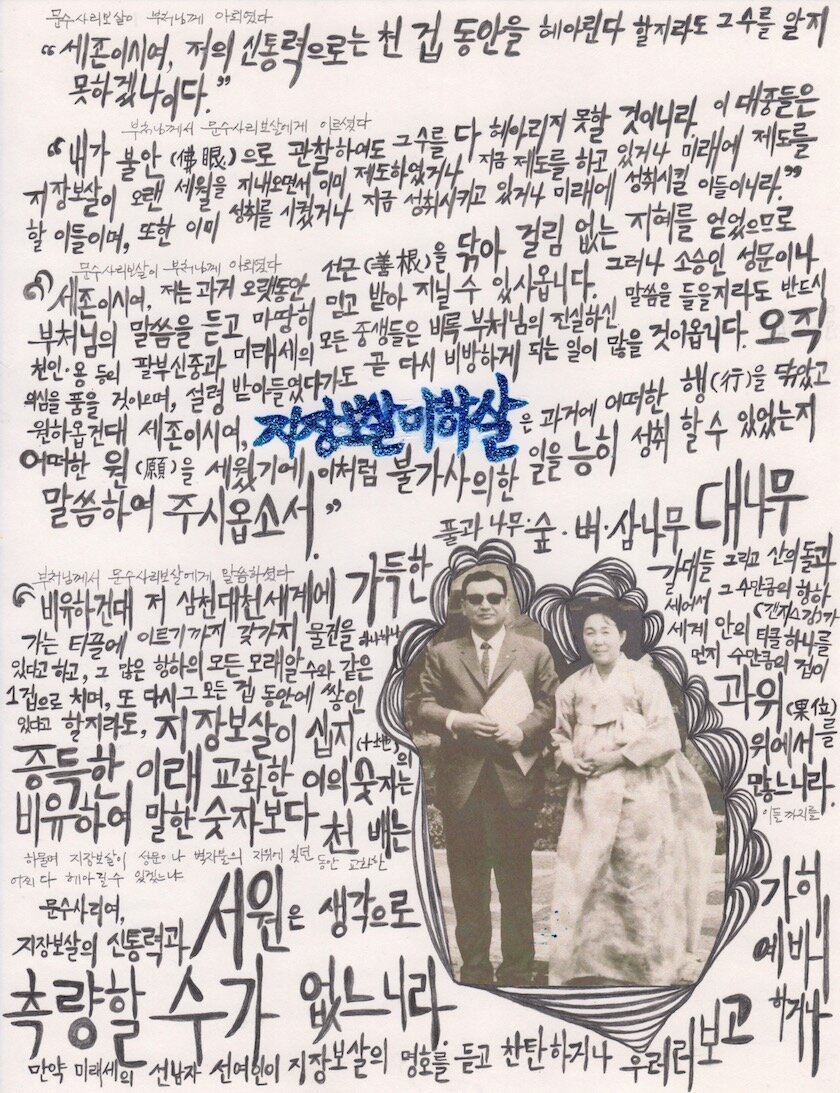 문수사리보살이 부처님께 아뢰었다
“세존이시여, 저의 신통력으로는 천 겁 동안을 헤아린다 할지라도 그 수를 알지
못하겠나이다.”
부처님께서 문수사리보살에게 이르셨다
“내가 불안(佛眼)으로 관찰하여도 그 수를 다 헤아리지 못할 것이니라. 이 대중들은
지장보살이 오랜 세월을 지내오면서 이미 제도하였거나 지금 제도를 하고 있거나 미래에 제도를
할 이들이며, 또한 이미 성취를 시켰거나 지금 성취시키고 있거나 미래에 성취시킬 이들이니라.”
문수사리보살이 부처님께 아뢰었다
“세존이시여, 저는 과거 오랫동안 선근(善根)을 닦아 걸림 없는 지혜를 얻었으므로
부처님의 말씀을 듣고 마땅히 믿고 받아 지닐 수 있사옵니다. 그러나 소승인 성문이나
천인·용 등의 팔부신중과 미래세의 모든 중생들은 비록 부처님의 진실하신 말씀을 들을지라도 반드시
의심을 품을 것이오며, 설령 받아들였다가도 곧 다시 비방하게 되는 일이 많을 것이옵니다. 오직
원하옵건대 세존이시여, 지장보살마하살은 과거에 어떠한 행(行)을 닦았고
어떠한 원(願)을 세웠기에 이처럼 불가사의한 일을 능히 성취 할 수 있었는지
말씀하여 주시옵소서.”
부처님께서 문수사리보살에게 말씀하셨다
“비유하건대 저 삼천대천세계에 가득한 풀과 나무·숲·벼·삼나무 대나무
갈대들 그리고 산의 돌과
가는 티끌에 이르기까지 갖가지 물건을 하나하나 세어서 그 수만큼의 항하
(갠지스강)가
있다고 하고, 그 많은 항하의 모든 모래알 수와 같은 세계 안의 티끌 하나를
1겁으로 치며, 또 다시 그 모든 겁 동안에 쌓인 먼지 수만큼의 겁이
있다고 할지라도, 지장보살이 십지(十地)의 과위(果位)를
증득한 이래 교화한 이의 숫자는 위에서
비유하여 말한 숫자보다 천 배는 많느니라
하물며 지장보살이 성문이나 벽지불의 지위에 있던 동안 교화한 이들까지를
어찌 다 헤아릴 수 있겠느냐
문수사리여,
지장보살의 신통력과 서원은 생각으로
측량할 수가 없느니라.
만약 미래세의 선남자 선여인이 지장보살의 명호를 듣고 찬탄하거나 우러러보고
가히
예배
하거나